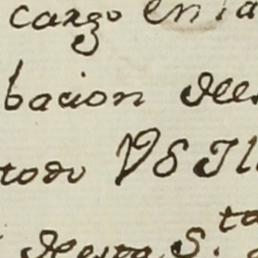 cargo en la
bacion del
todo VS Il
S.ta